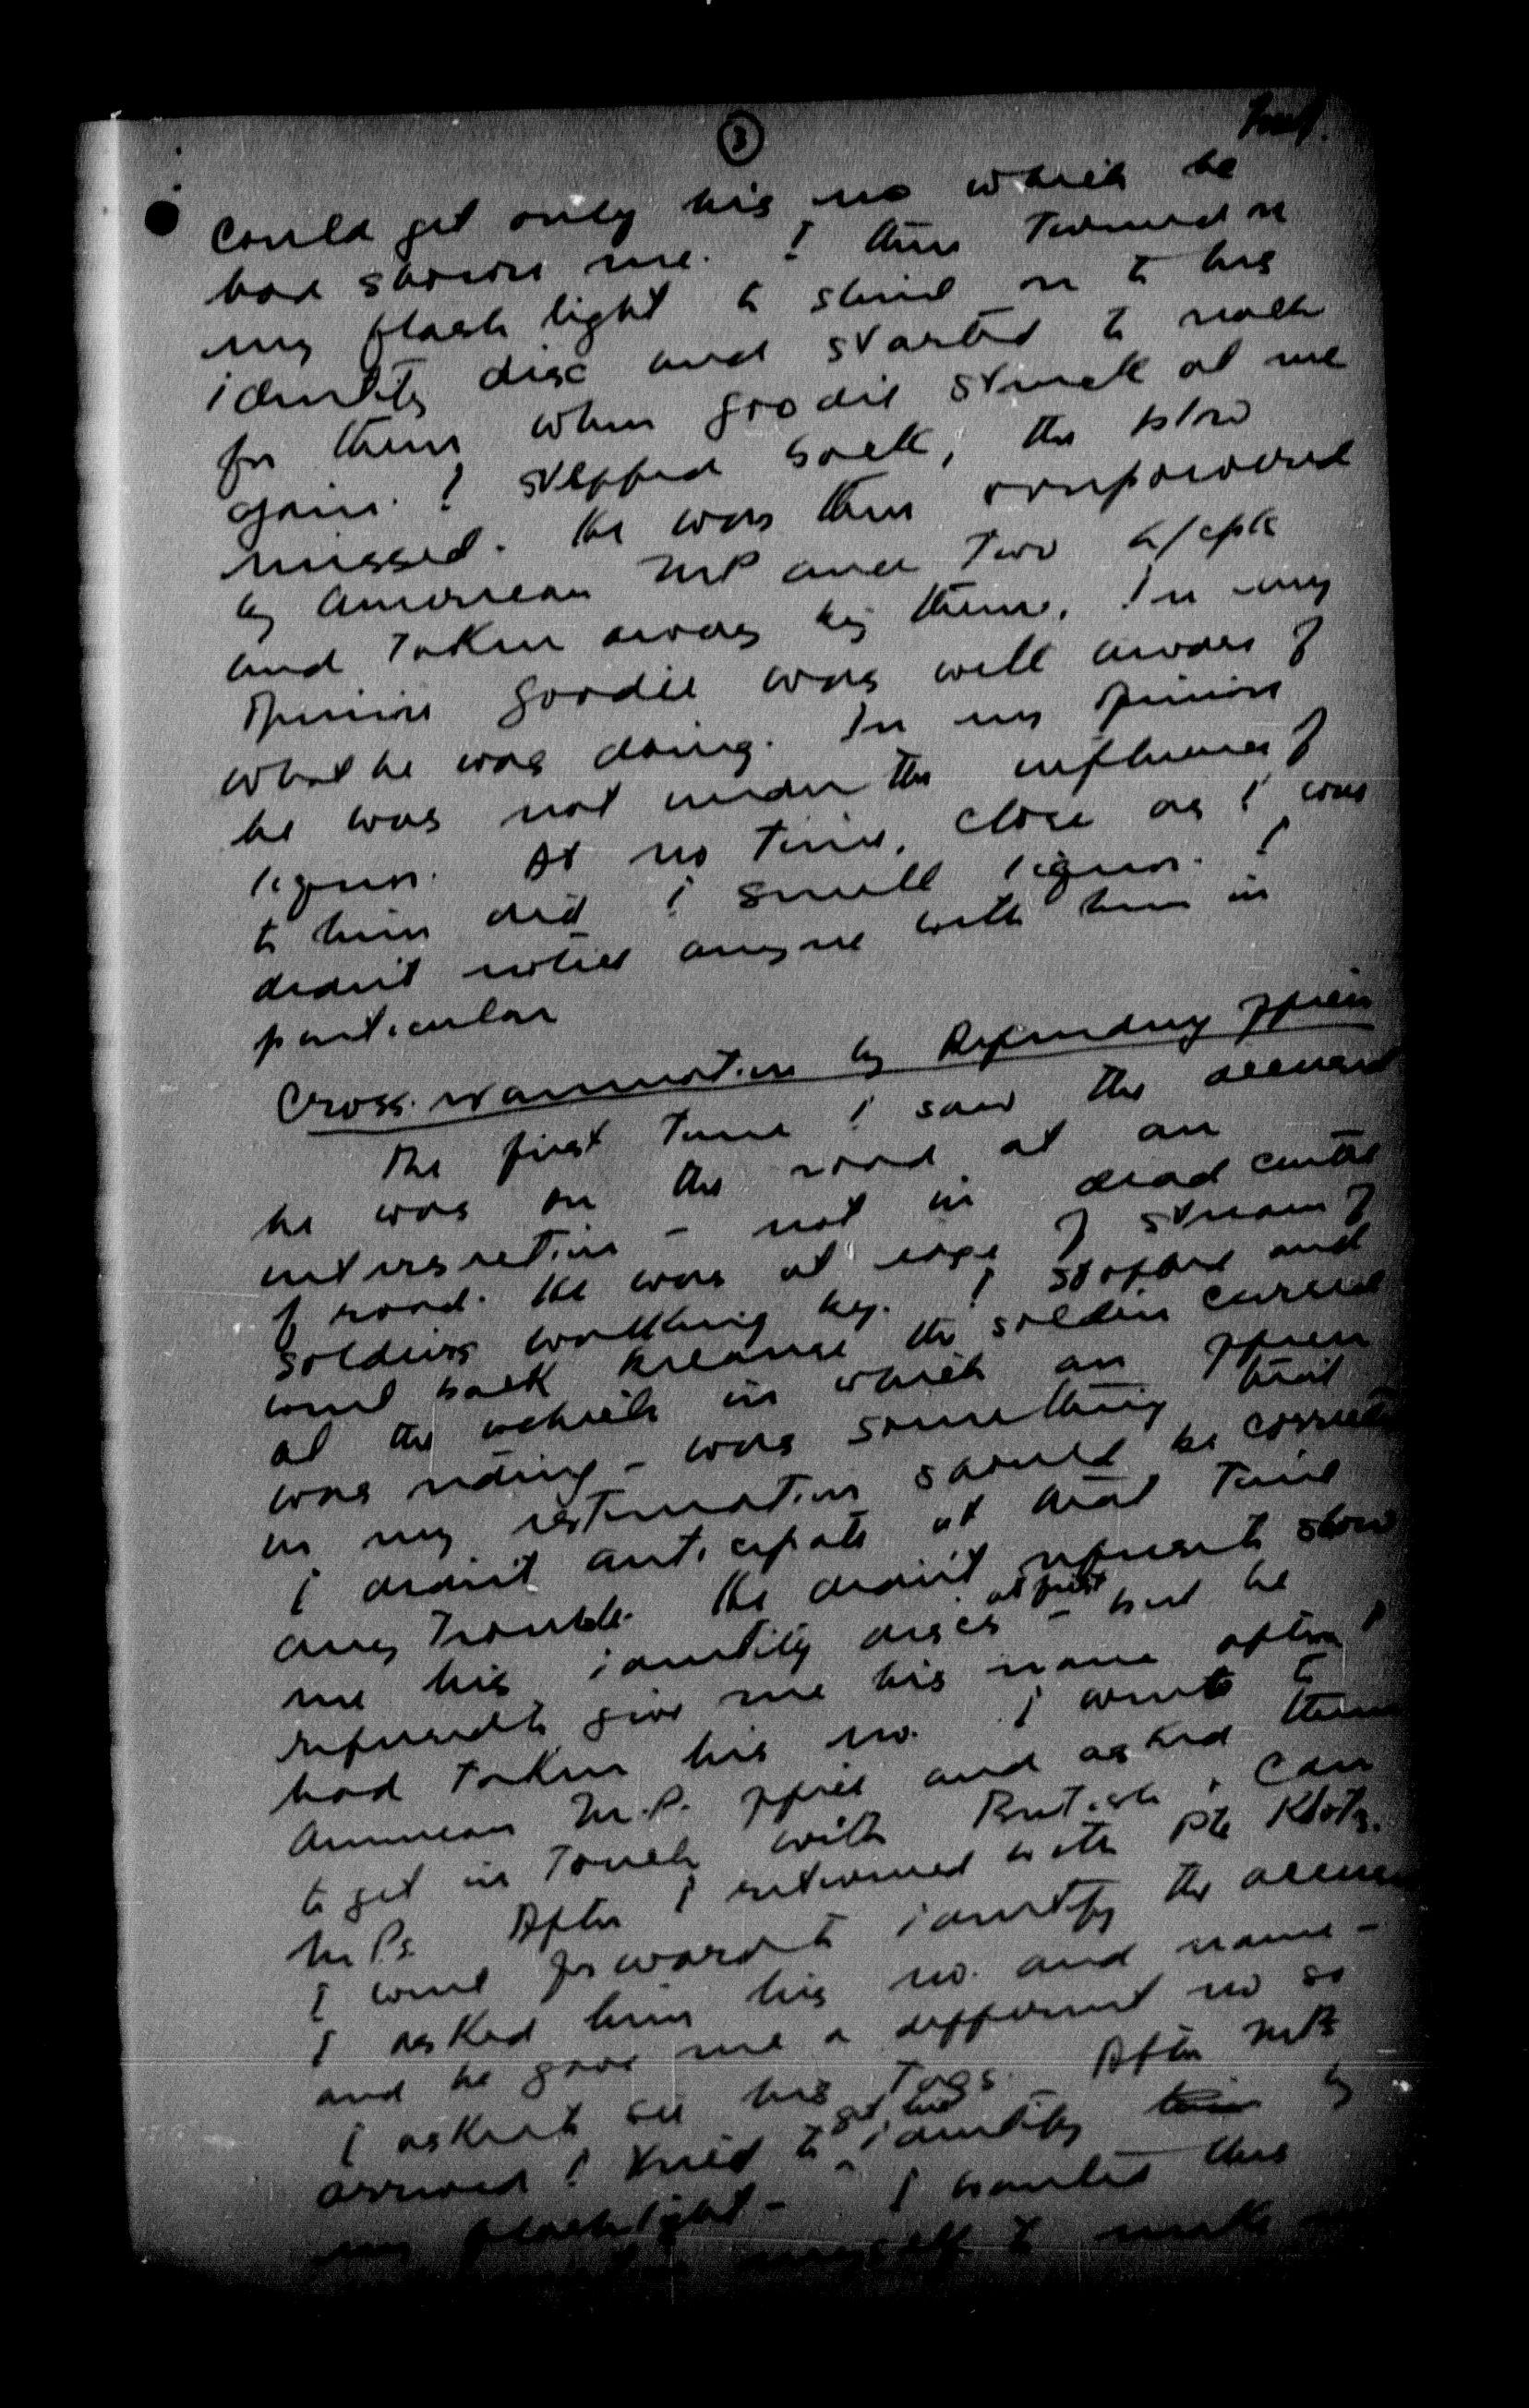 3
could get only his no which he
had shown me. I then turned on
my flash light to shine on to his
identity disc and started to reach
for them when Goodie struck at me
again. I stepped back, the blow
missed. He was then overpowered
by American MP and two L/Cpls
and taken away by them. In my
opinion Goodie was well aware of
what he was doing. In my opinion
he was not under the influence of
liquor. At no time, close as I was
to him did I smell liquor. I
didn't notice anyone with him in
particular
Cross examination by Defending Officer
The first time I saw the accused
he was on the road at an
intersection - not in dead center
of road. He was at edge of stream of
soldiers walking by. I stopped and
went back because the soldier cursed
at the vehicle in which an officer
was riding - was something that
in my estimation should be corrected
I didn't anticipate at that time
any trouble. He didn't refuse to show
me his identity discs at first - but he
refused to give me his name after I
had taken his no. I went to
American M.P. office and asked them
to get in touch with British, Can
M.Ps After I returned with Pte Klotz.
I went forward to identify the accused
I asked him his no. and name -
and he gave me a different no so
I asked to see his tags. After MPs
arrived I tried to get his identity by
my flashlight - I wanted this
myself to make